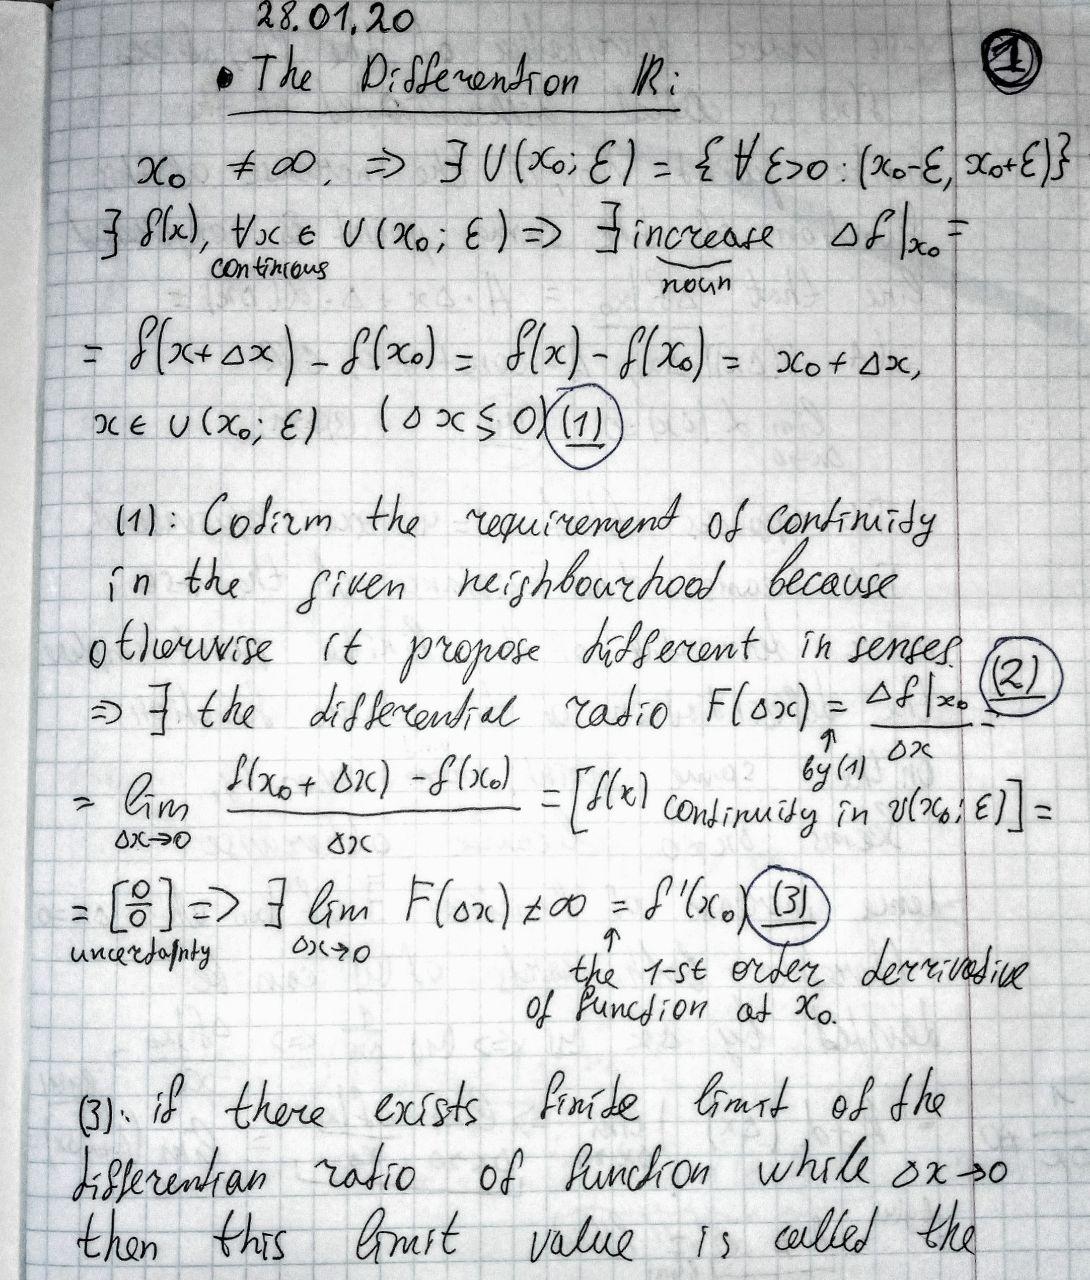 28.01.20
1
• The Differention ℝ:
x₀ ≠ ∞, => ∃ U(x₀; ε) = {∀ ε>0 : (x₀-ε, x₀+ε)}
∃ f(x), ∀x ∈ U(x₀; ε) => ∃ increase Δf|x₀ =
continious
noun
= f(x+Δx) - f(x₀) = f(x) - f(x₀) = x₀ + Δx,
x ∈ U(x₀; ε) (Δx ≶ 0) (1)
(1): Cofirm the requirement of continuity
in the given neighbourhood because
otherwise it propose different in senses. (2)
=> ∃ the differential ratio F(Δx) = Δf|x₀ / Δx =
by (1)
= lim Δx→0 (f(x₀ + Δx) - f(x₀)) / Δx = [f(x) continuity in U(x₀; ε)] =
= [0/0] => ∃ lim Δx→0 F(Δx) ≠ ∞ = f'(x₀) (3)
uncertainty
↑ the 1-st order derrivative
of function at x₀.
(3): if there exists finite limit of the
differentian ratio of function while Δx→0
then this limit value is called the